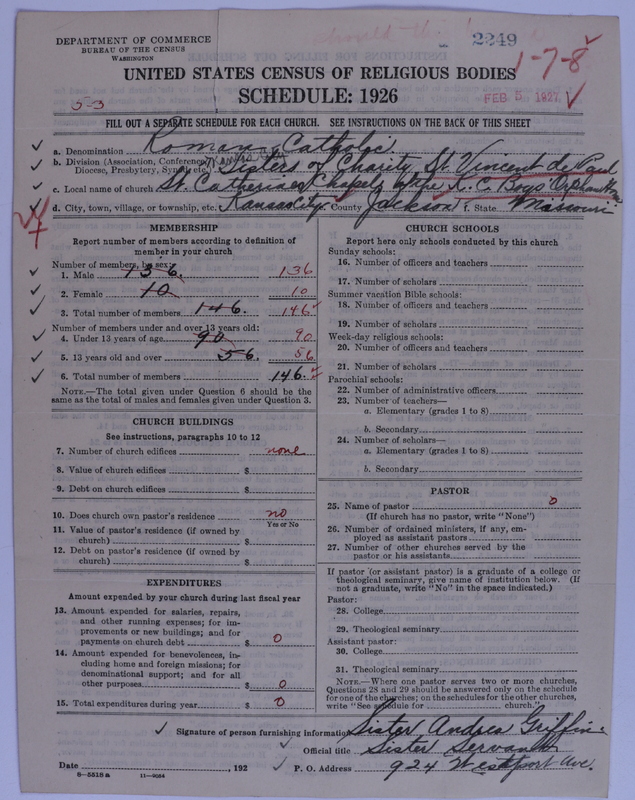 2249
DEPARTMENT OF COMMERCE
BUREAU OF THE CENSUS
WASHINGTON
1-7-8
UNITED STATES CENSUS OF RELIGIOUS BODIES
SCHEDULE: 1926
5-3
FEB 5 1927
FILL OUT A SEPARATE SCHEDULE FOR EACH CHURCH. SEE INSTRUCTIONS ON THE BACK OF THIS SHEET
a. Denomination Roman Catholic
b. Division (Association, Conference, Kansas City Sisters of Charity St. Vincent de Paul
Diocese, Presbytery, Synod, etc.)
c. Local name of church St. Catherine's Chapel, of the K. C. Boys Orphan Home
d. City, town, village, or township, etc. Kansas City County Jackson f. State Missouri
MEMBERSHIP
Report number of members according to definition of
member in your church
Number of members, by sex:
1. Male 136. 136
2. Female 10 10
3. Total number of members 146. 146
Number of members under and over 13 years old:
4. Under 13 years of age 90 90
5. 13 years old and over 56. 56
6. Total number of members 146.
NOTE.—The total given under Question 6 should be the
same as the total of males and females given under Question 3.
CHURCH BUILDINGS
See instructions, paragraphs 10 to 12
7. Number of church edifices none
8. Value of church edifices $
9. Debt on church edifices $
10. Does church own pastor's residence no
Yes or No
11. Value of pastor's residence (if owned by
church) $
12. Debt on pastor's residence (if owned by
church) $
EXPENDITURES
Amount expended by your church during last fiscal year
13. Amount expended for salaries, repairs,
and other running expenses; for im-
provements or new buildings; and for
payments on church debt $ 0
14. Amount expended for benevolences, in-
cluding home and foreign missions; for
denominational support; and for all
other purposes $ 0
15. Total expenditures during year $ 0
CHURCH SCHOOLS
Report here only schools conducted by this church
Sunday schools:
16. Number of officers and teachers
17. Number of scholars
Summer vacation Bible schools:
18. Number of officers and teachers
19. Number of scholars
Week-day religious schools:
20. Number of officers and teachers
21. Number of scholars
Parochial schools:
22. Number of administrative officers
23. Number of teachers—
a. Elementary (grades 1 to 8)
b. Secondary
24. Number of scholars—
a. Elementary (grades 1 to 8)
b. Secondary
PASTOR
25. Name of pastor 0
(If church has no pastor, write "None")
26. Number of ordained ministers, if any, em-
ployed as assistant pastors
27. Number of other churches served by the
pastor or his assistants
If pastor (or assistant pastor) is a graduate of a college or
theological seminary, give name of institution below. (If
not a graduate, write "No" in the space indicated.)
Pastor:
28. College
29. Theological seminary
Assistant pastor:
30. College
31. Theological seminary
NOTE.—Where one pastor serves two or more churches,
Questions 28 and 29 should be answered only on the schedule
for one of the churches; on the schedules for the other churches,
write "See schedule for church."
Signature of person furnishing information Sister Andrea Griffin
Official title Sister Servant
Date , 192
P. O. Address 924 Westport Ave.
6-5518 a 11-9054